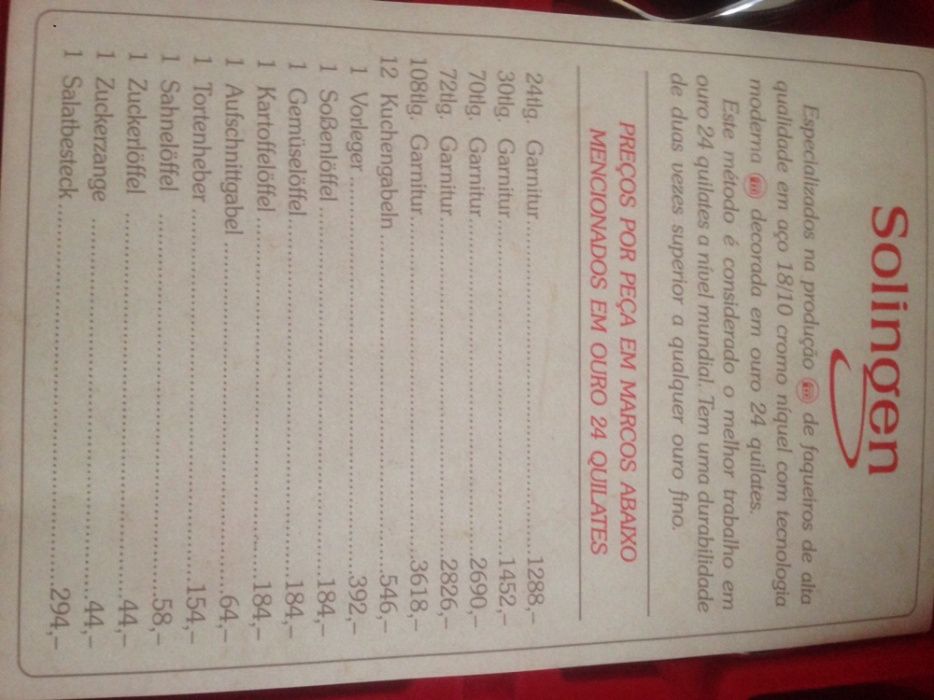 Solingen
Especializados na produção de faqueiros de alta
qualidade em aço 18/10 cromo níquel com tecnologia
moderna decorada em ouro 24 quilates.
Este método é considerado o melhor trabalho em
ouro 24 quilates a nível mundial. Tem uma durabilidade
de duas vezes superior a qualquer ouro fino.
PREÇOS POR PEÇA EM MARCOS ABAIXO
MENCIONADOS EM OURO 24 QUILATES
24tlg. Garnitur..............................1288,–
30tlg. Garnitur..............................1452,–
70tlg. Garnitur..............................2690,–
72tlg. Garnitur..............................2826,–
108tlg. Garnitur..............................3618,–
12 Kuchengabeln..............................546,–
1 Vorleger..............................392,–
1 Soßenlöffel..............................184,–
1 Gemüselöffel..............................184,–
1 Kartoffelöffel..............................184,–
1 Aufschnittgabel..............................64,–
1 Tortenheber..............................154,–
1 Sahnelöffel..............................58,–
1 Zuckerlöffel..............................44,–
1 Zuckerzange..............................44,–
1 Salatbesteck..............................294,–